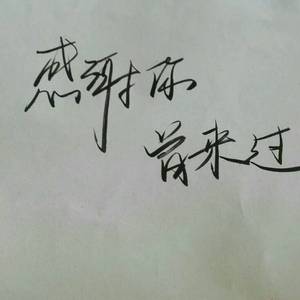 感谢你
曾来过